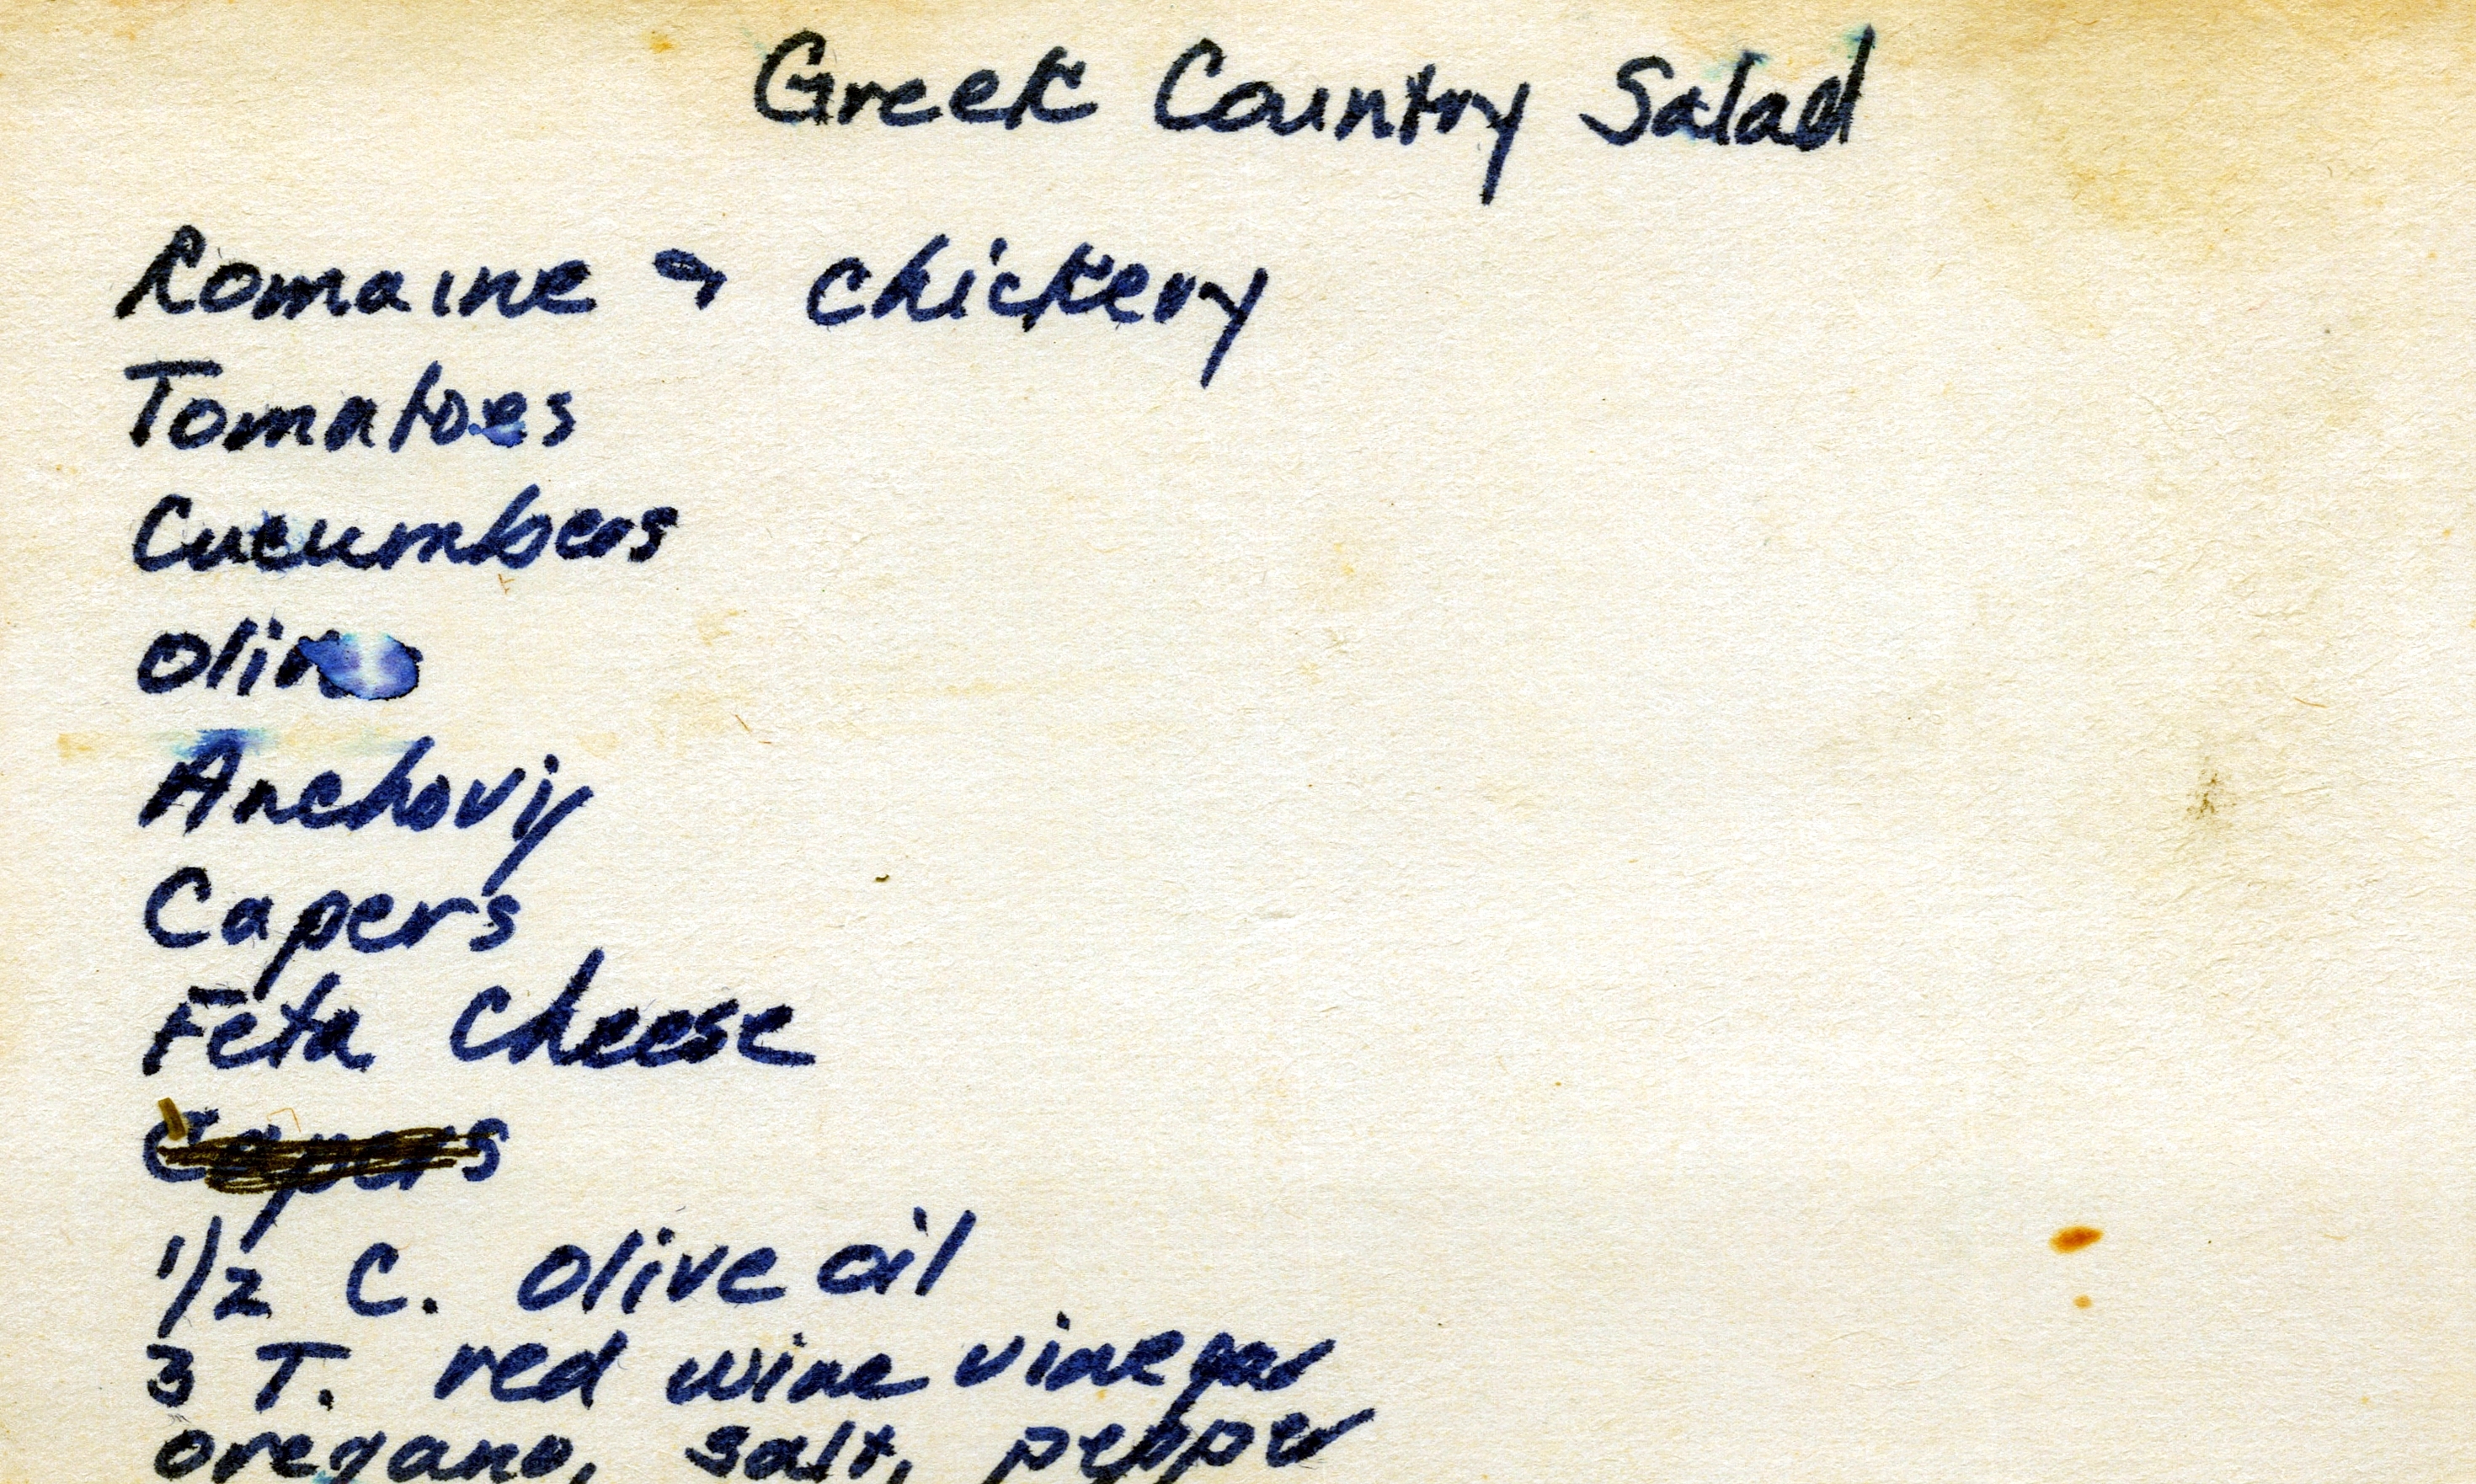 Greek Country Salad
Romaine → chickery
Tomatoes
Cucumbers
Anchovy
Capers
Feta Cheese
Capers
1/2 C. olive oil
3 T. red wine vinegar
oregano, salt, pepper